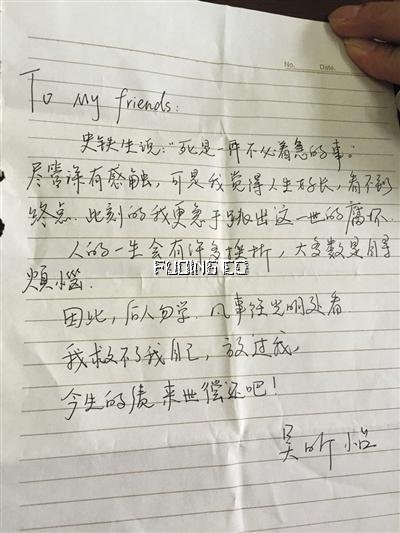 No. Date.
To My friends:
史铁生说:"死是一件不必着急的事。"
尽管深有感触,可是我觉得人生好长,看不到
终点.此刻的我更急于跳出这一世的腐怀.
人的一生会有许多挫折,大多数是自寻
烦恼.
因此,后人勿学.凡事往光明处看.
我救不了我自己,放过我,
今生的债来世偿还吧!
吴昕怡